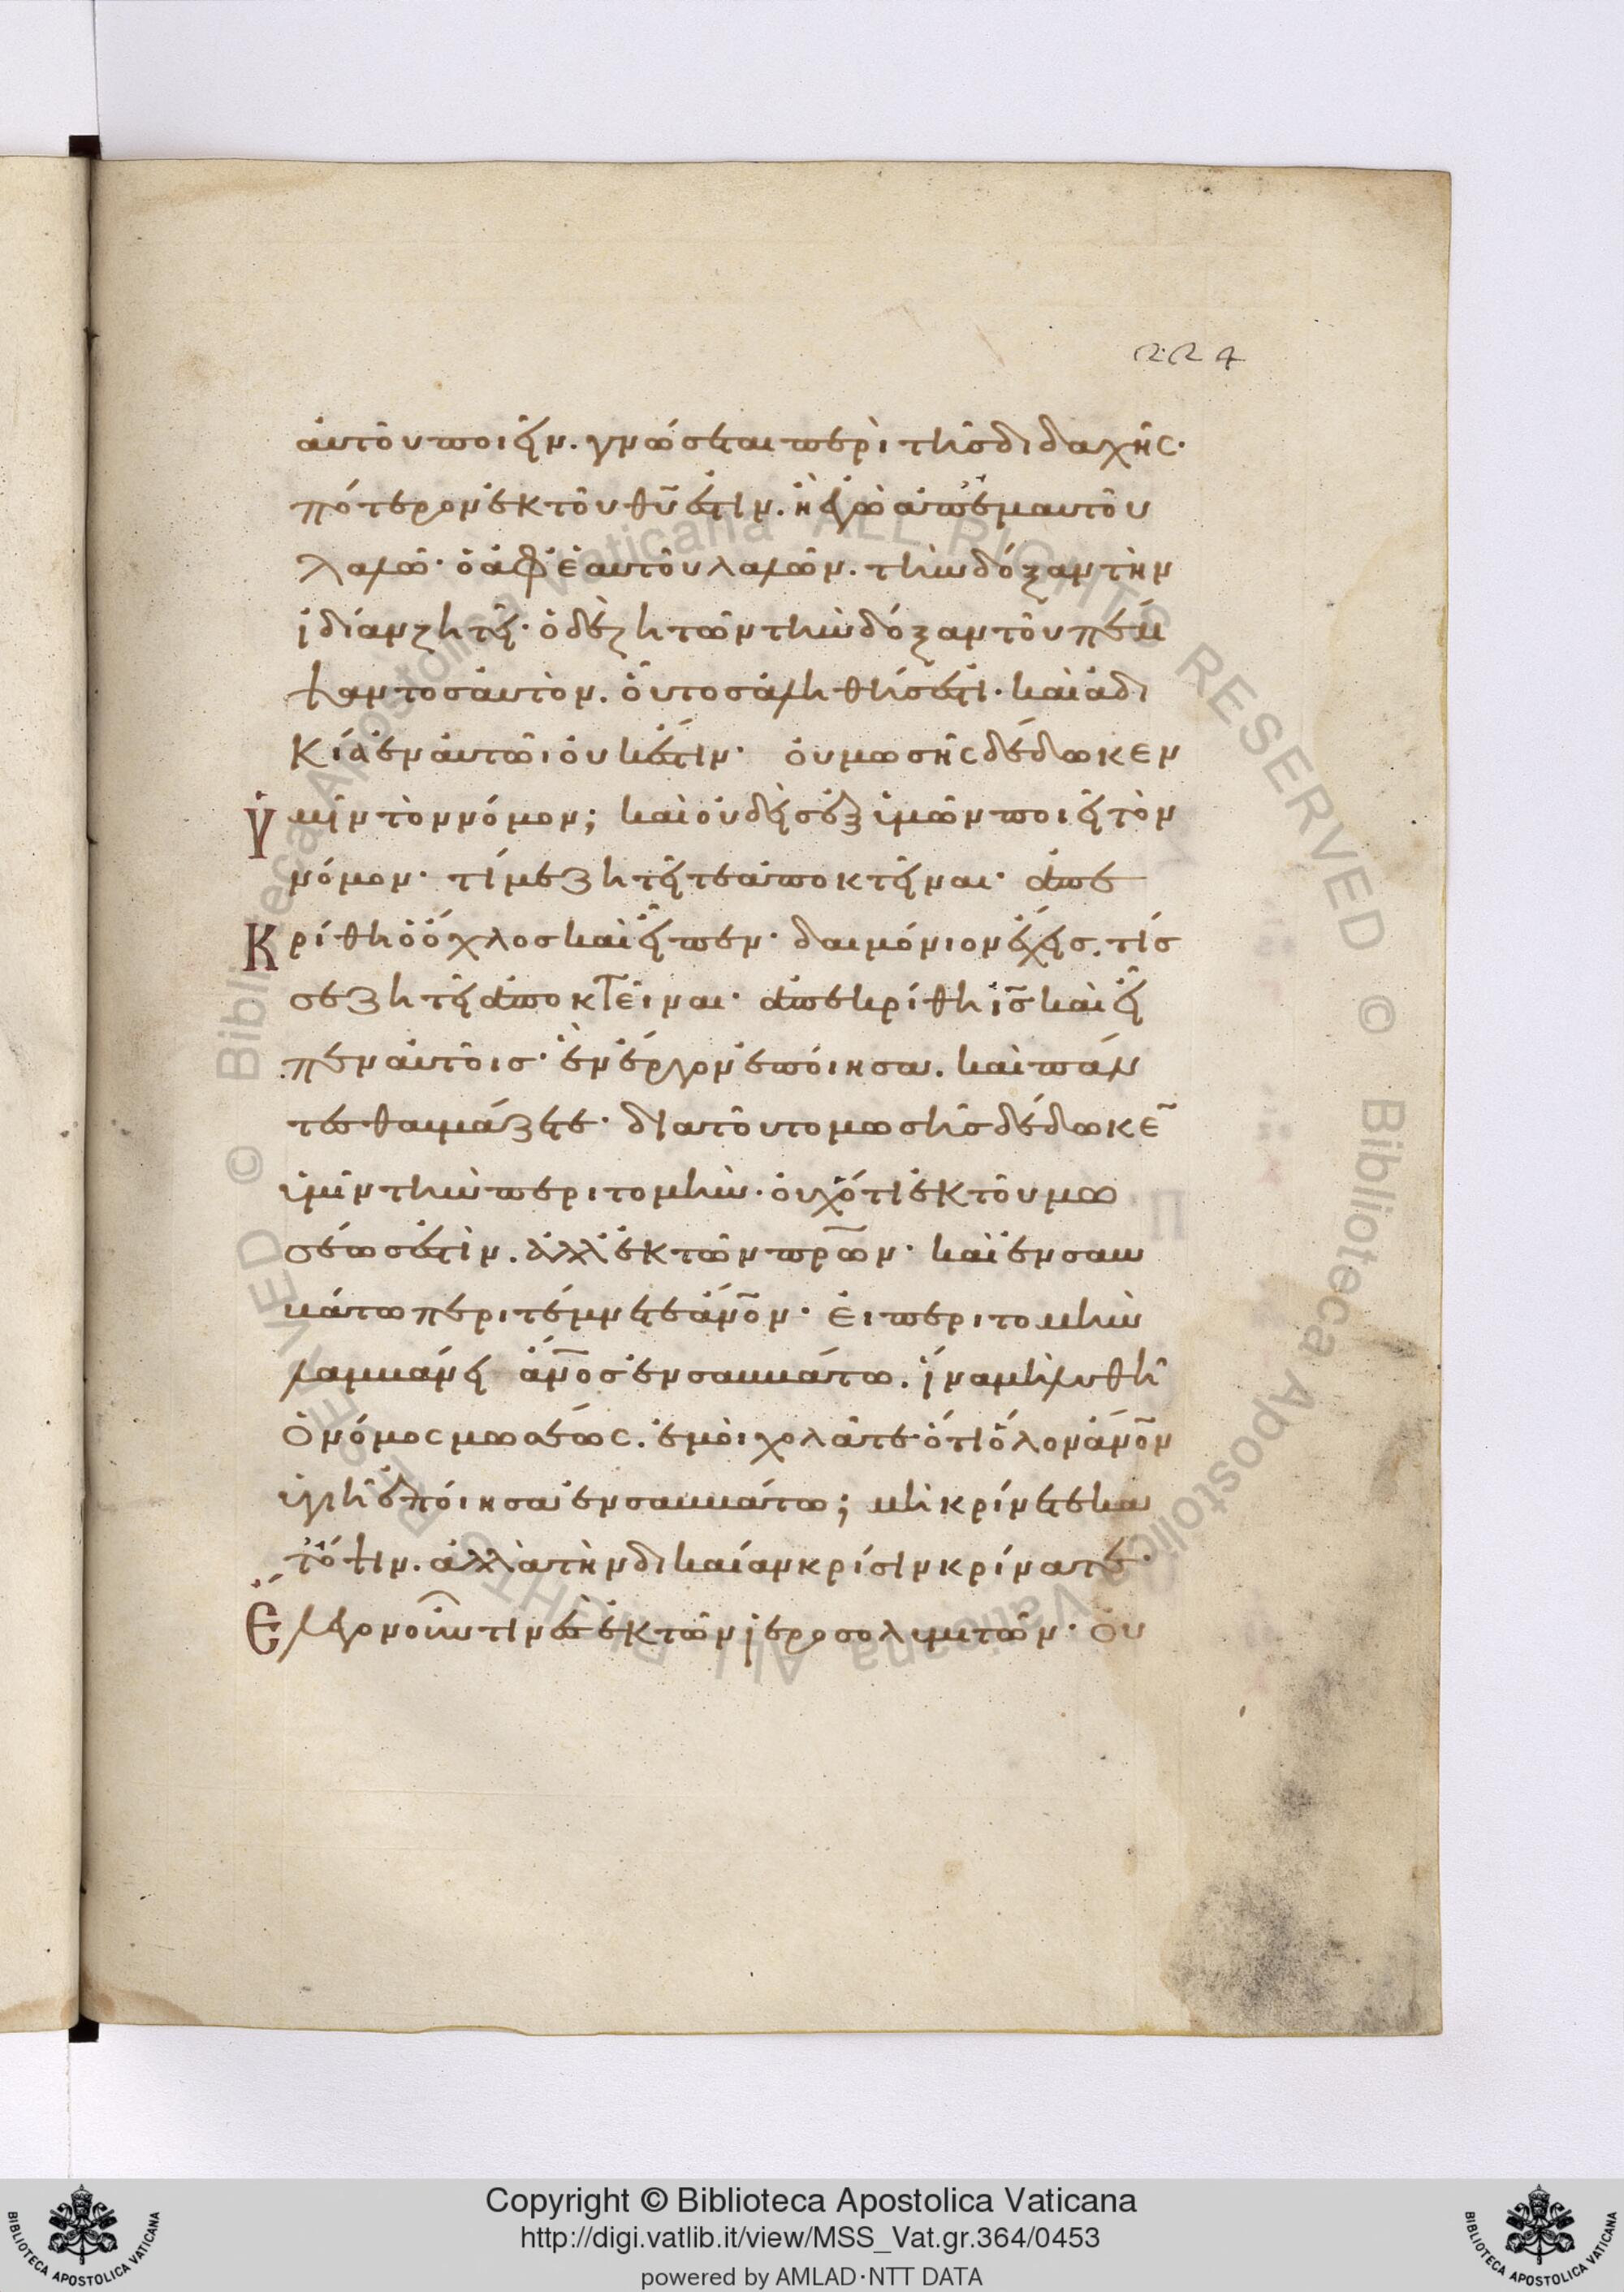 224
αὐτοῦ ποιεῖν. γνώσεται περὶ τῆς διδαχῆς·
πότερον ἐκ τοῦ θυ̅ ἐστιν. ἢ ἐγὼ ἀπ' ἐμαυτοῦ
λαλῶ· ὁ ἀφ' ἑαυτοῦ λαλῶν. τὴν δόξαν τὴν
ἰδίαν ζητεῖ· ὁ δὲ ζητῶν τὴν δόξαν τοῦ πέμ
ψαντος αὐτὸν. οὗτος ἀληθής ἐστι· καὶ ἀδι
κία ἐν αὐτῶι οὐκ ἔστιν· οὐ μωσῆς δέδωκεν
ὑμῖν τὸν νόμον; καὶ οὐδεὶς ἐξ ὑμῶν ποιεῖ τὸν
νόμον· τί με ζητεῖτε ἀποκτεῖναι· ἀπε
κρίθη ὁ ὄχλος καὶ εἶπεν· δαιμόνιον ἔχεις. τίς
σε ζητεῖ ἀποκτεῖναι· ἀπεκρίθη ις̅ καὶ εἶ
πεν αὐτοῖς· ἓν ἔργον ἐποίησα. καὶ πάν
τες θαυμάζετε· διατοῦτο μωσῆς δέδωκε̅
ὑμῖν τὴν περιτομήν· οὐχ ὅτι ἐκ τοῦ μω
σέως ἐστὶν. ἀλλ' ἐκ τῶν πρ̅ων· καὶ ἐν σαβ
βάτω περιτέμνετε ἄνο̅ν· εἰ περιτομὴν
λαμβάνει ἄνο̅ς ἐν σαββάτω. ἵνα μὴ λυθῆ
ὁ νόμος μωσέως. ἐμοὶ χολᾶτε ὅτι ὅλον ἄνο̅ν
ὑγιῆ ἐποίησα ἐν σαββάτω; μὴ κρίνετε κα
τ' ὄψιν. ἀλλὰ τὴν δικαίαν κρίσιν κρίνατε·
Ἔλεγον οὖν τινὲς ἐκ τῶν ἱεροσολυμιτῶν· οὐ
Copyright © Biblioteca Apostolica Vaticana
http://digi.vatlib.it/view/MSS_Vat.gr.364/0453
powered by AMLAD·NTT DATA
BIBLIOTECA APOSTOLICA VATICANA
BIBLIOTECA APOSTOLICA VATICANA
© Biblioteca Apostolica Vaticana ALL RIGHTS RESERVED © Biblioteca Apostolica Vaticana ALL RIGHTS RESERVED